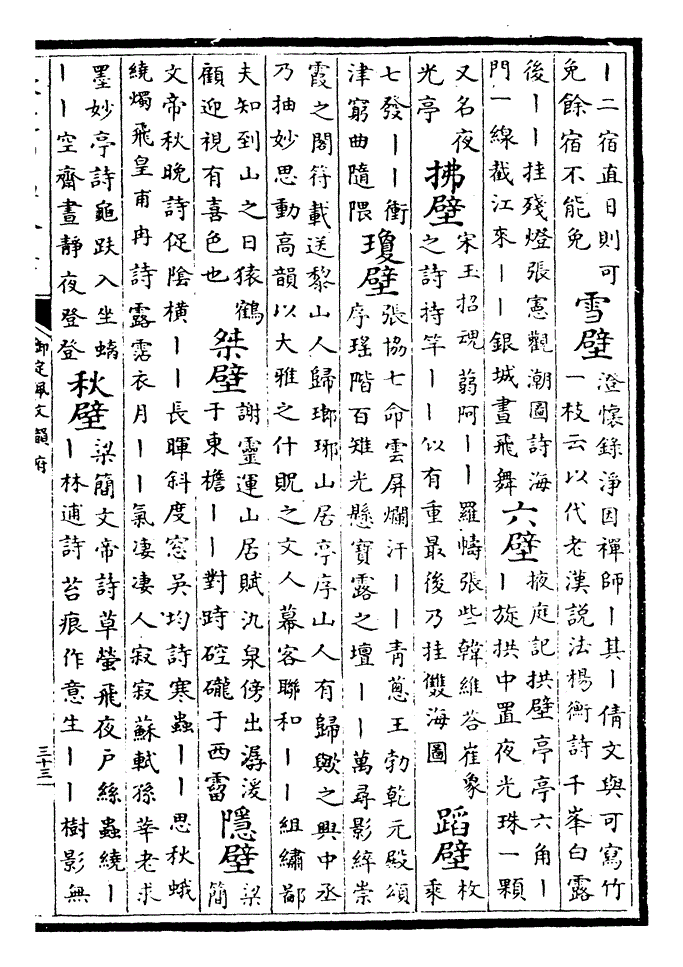 丨二宿直日則可
免餘宿不能免
雪壁
澄懷錄淨因禪師丨其丨倩文與可寫竹
一枝云以代老漢說法楊衡詩千峯白露
後丨丨挂殘燈張憲觀潮圖詩海
門一線截江來丨丨銀城晝飛舞
六壁
掖庭記拱壁亭亭六角丨
丨旋拱中置夜光珠一顆
又名夜
光亭
拂壁
宋玉招魂蒻阿丨丨羅幬張些韓維荅崔象
之詩持竿丨丨似有重最後乃挂雙海圖
蹈壁
枚
乘
七發丨丨衝
津窮曲隨隈
瓊壁
張協七命雲屏爛汗丨丨青蔥王勃乾元殿頌
序瑤階百雉光懸寶露之壇丨丨萬尋影綷崇
霞之閣符載送黎山人歸瑯琊山居亭序山人有歸歟之興中丞
乃抽妙思動高韻以大雅之什貺之文人幕客聯和丨丨組繡鄙
夫知到山之日猿鶴
顧迎視有喜色也
桀壁
謝靈運山居賦氿泉傍出潺湲
于東檐丨丨對跱硿礲于西霤
隱壁
梁
簡
文帝秋晚詩促陰橫丨丨長暉斜度窓吳均詩寒蟲丨丨思秋蛾
繞燭飛皇甫冉詩露霑衣月丨丨氣凄凄人寂寂蘇軾孫莘老求
墨妙亭詩龜趺入坐螭
丨丨空齋晝靜夜登登
秋壁
梁簡文帝詩草螢飛夜户絲蟲繞丨
丨林逋詩苔痕作意生丨丨樹影無
御定佩文韻府
三十三